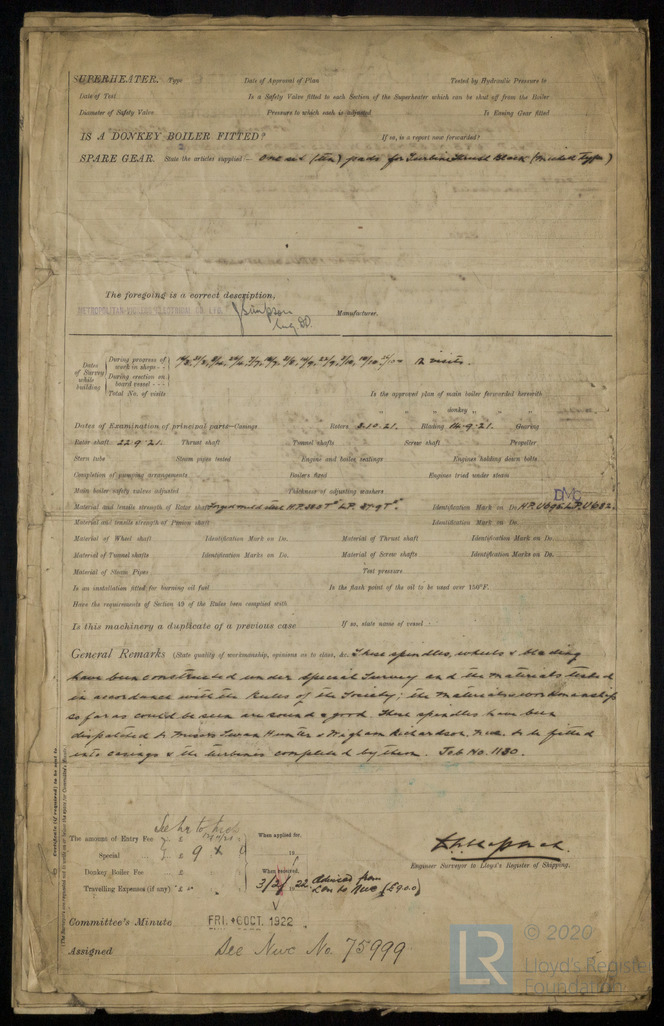 SUPERHEATER. Type Date of Approval of Plan Tested by Hydraulic Pressure to
Date of Test Is a Safety Valve fitted to each Section of the Superheater which can be shut off from the Boiler
Diameter of Safety Valve Pressure to which each is adjusted Is Easing Gear fitted
IS A DONKEY BOILER FITTED? If so, is a report now forwarded?
SPARE GEAR. State the articles supplied:— One set (ten) pads for Turbine Thrust Block (Michell Type)
The foregoing is a correct description,
METROPOLITAN-VICKERS ELECTRICAL CO. LTD. Simpson Manufacturer.
Dates of Survey while building
During progress of work in shops - - 12 visits.
During erection on board vessel - - -
Total No. of visits
Is the approved plan of main boiler forwarded herewith
" " " donkey " " "
Dates of Examination of principal parts—Casings Rotors 3.10.21. Blading 14.9.21. Gearing
Rotor shaft 22.9.21. Thrust shaft Tunnel shafts Screw shaft Propeller
Stern tube Steam pipes tested Engine and boiler seatings Engines holding down bolts
Completion of pumping arrangements Boilers fixed Engines tried under steam
Main boiler safety valves adjusted Thickness of adjusting washers
Material and tensile strength of Rotor shaft Identification Mark on Do.
Material and tensile strength of Pinion shaft Identification Mark on Do.
Material of Wheel shaft Identification Mark on Do. Material of Thrust shaft Identification Mark on Do.
Material of Tunnel shafts Identification Marks on Do. Material of Screw shafts Identification Marks on Do.
Material of Steam Pipes Test pressure
Is an installation fitted for burning oil fuel Is the flash point of the oil to be used over 150°F.
Have the requirements of Section 49 of the Rules been complied with
Is this machinery a duplicate of a previous case If so, state name of vessel
General Remarks (State quality of workmanship, opinions as to class, &c. These spindles, wheels & blading
have been constructed under Special Survey and the materials tested
in accordance with the Rules of the Society; the materials & workmanship
so far as could be seen are sound & good. These spindles have been
dispatched to Messrs Swan Hunter & Wigham Richardson, to be fitted
into casings & the turbines completed by them. Job No. 1130.
The amount of Entry Fee £ When applied for,
Special £ 9
Donkey Boiler Fee £ When received,
Travelling Expenses (if any) £ 22. Advised from
Lon to Nwc
Engineer Surveyor to Lloyd's Register of Shipping.
Committee's Minute FRI. 6 OCT. 1922
Assigned See Nwc No. 75999
© 2020
LR Lloyd's Register
Foundation